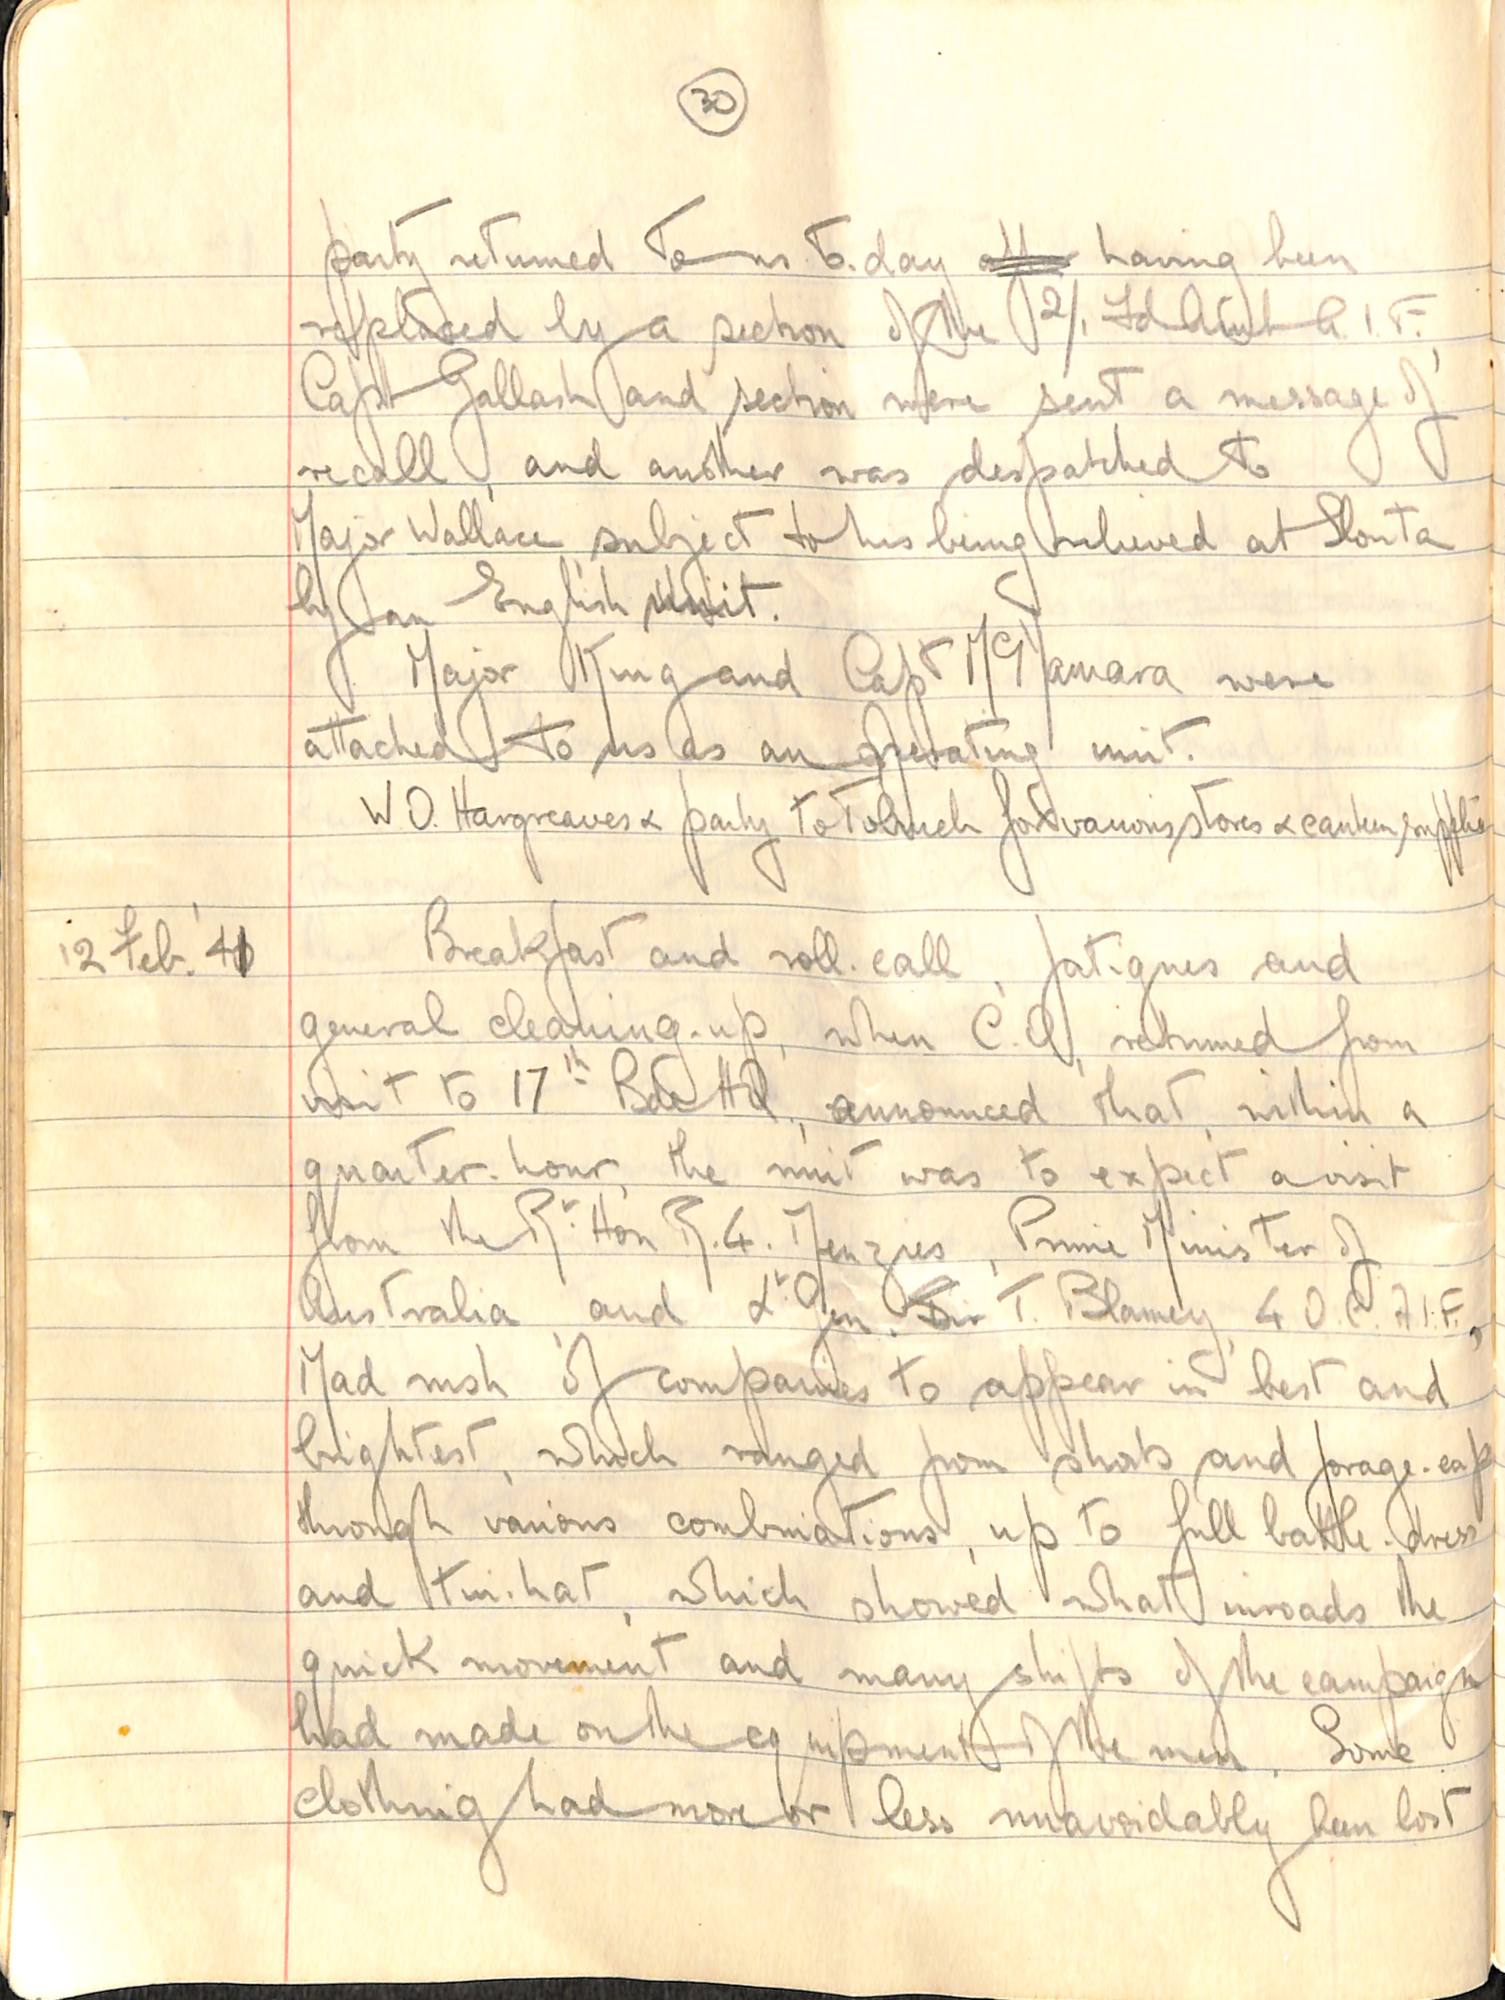 30
party returned to us to.day having been
replaced by a section of the 2/1 Fd Amb A.I.F.
Capt Gallash and section were sent a message of
recall, and another was despatched to
Major Wallace subject to his being relieved at Slonta
by an English Unit.
Major King and Capt McNamara were
attached to us as an operating unit.
W.O. Hargreaves & party to Tobruch for various stores & canteen supplies
12 Feb. '41 Breakfast and roll.call, fatigues and
general cleaning.up, when C.O., returned from
visit to 17th Bde HQ, announced that, within a
quarter.hour, the unit was to expect a visit
from the Rt. Hon R.G. Menzies, Prime Minister of
Australia and Lt. Gen. Sir T. Blamey, G.O.C. A.I.F.,
Mad rush of companies to appear in best and
brightest, which ranged from shorts and forage.cap
through various combinations, up to full battle.dress
and tin.hat, which showed what inroads the
quick movement and many shifts of the campaign
had made on the equipment of the men. Some
clothing had more or less unavoidably been lost